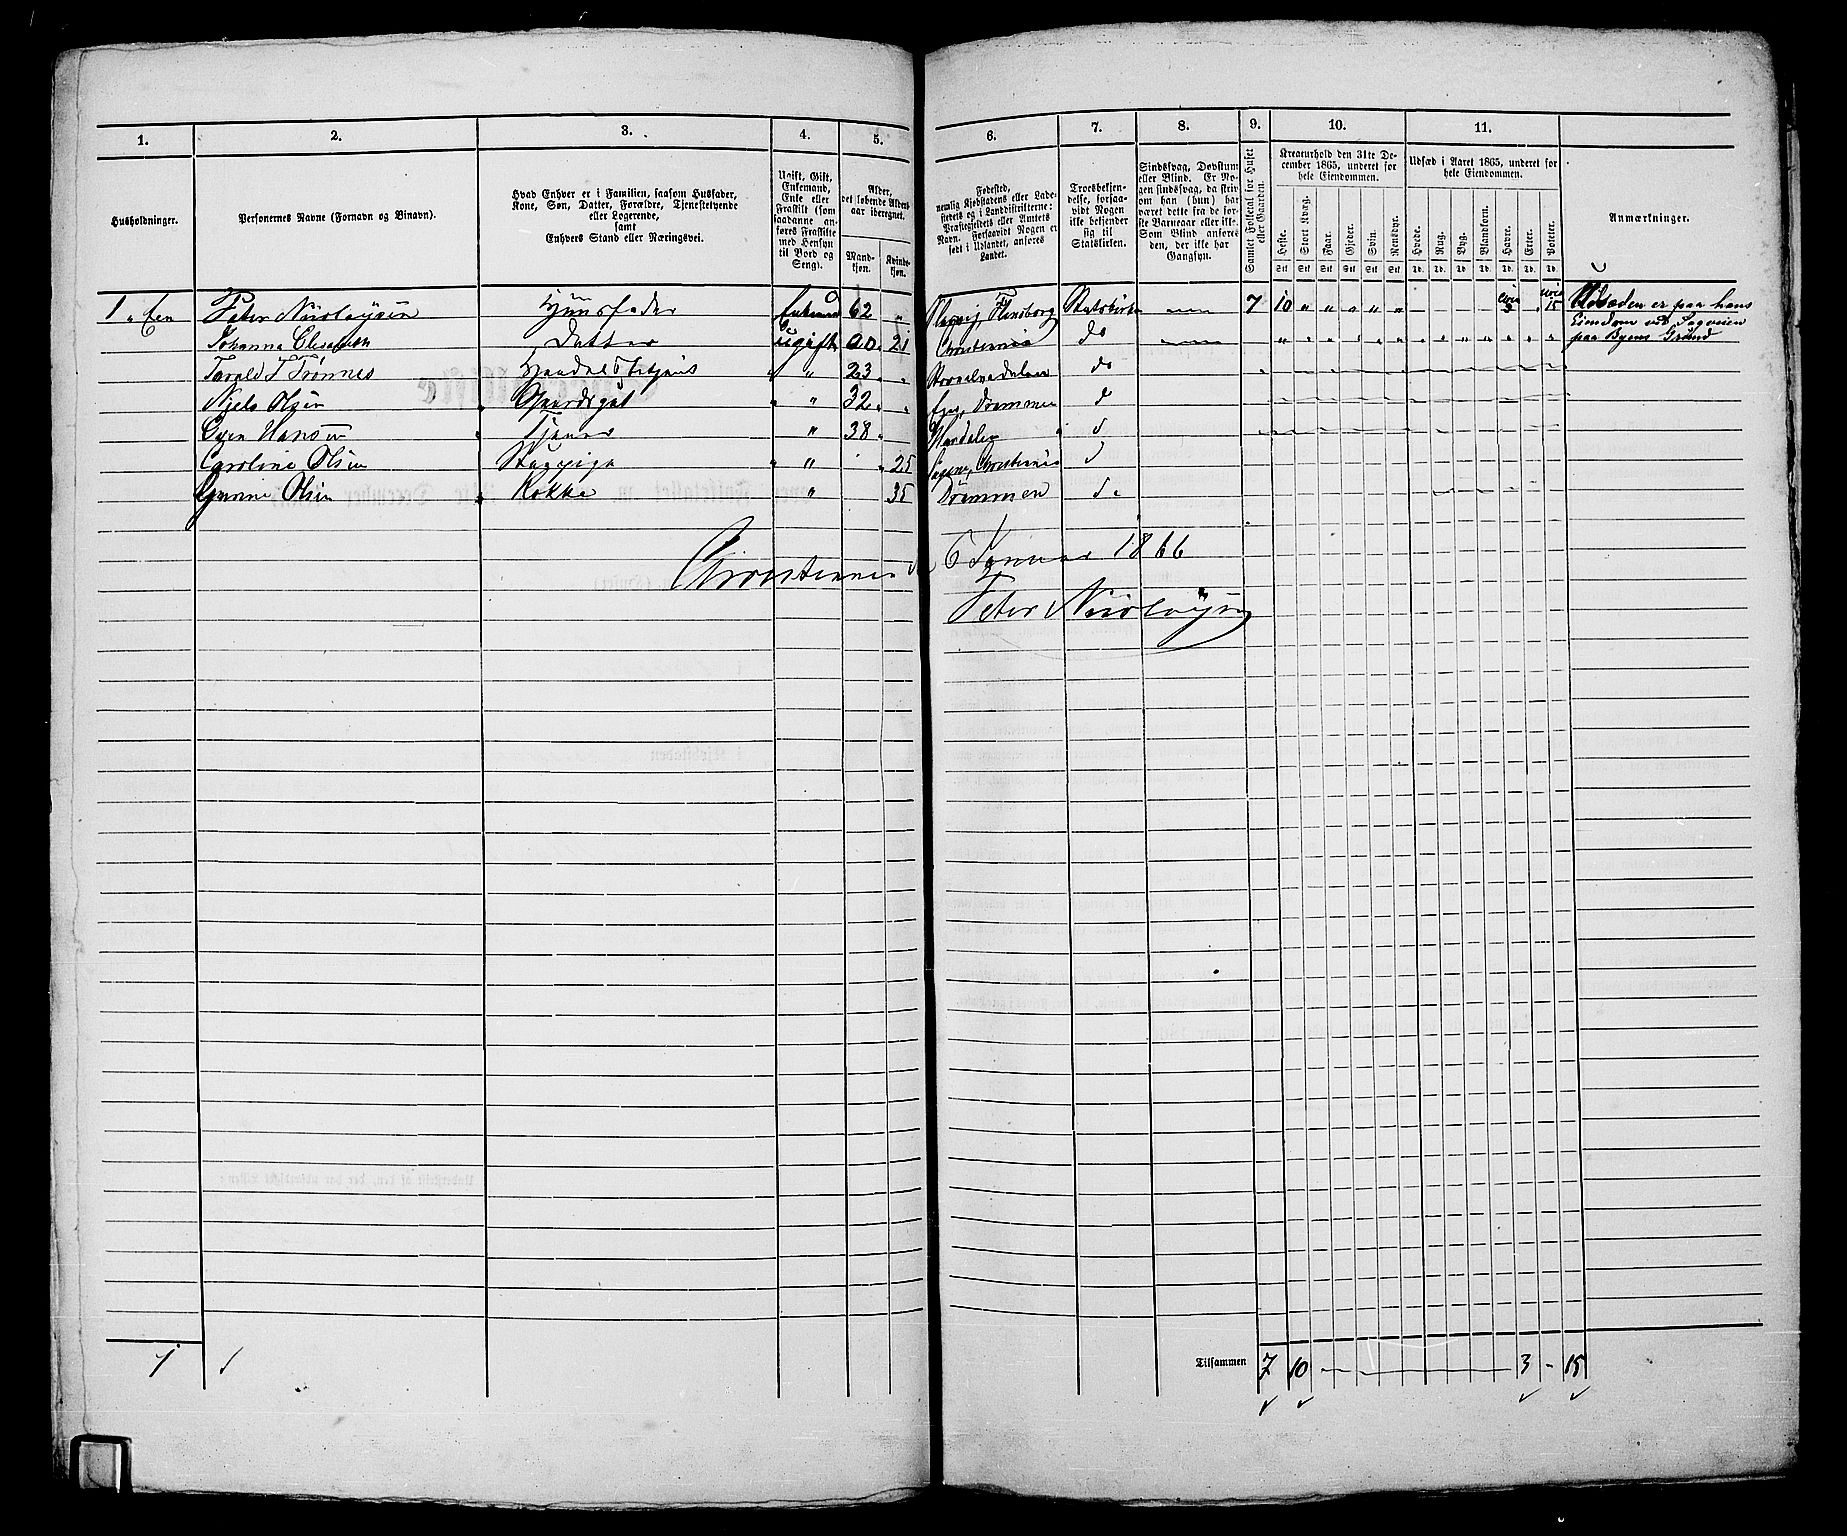 1. 2. 3. 4. 5. 6. 7. 8. 9. 10. 11.
Husholdninger.
Personernes Navne (Fornavn og Binavn).
Hvad Enhver er i Familien, saasom Husfader,
Kone, Søn, Datter, Forældre, Tjenestetyende
eller Logerende,
samt
Enhvers Stand eller Næringsvei.
Ugift, Gift,
Enkemand,
Enke eller
Fraskilt (som
saadanne an-
føres Fraskilte
med Hensyn
til Bord og
Seng).
Alder,
det løbende Alders-
aar iberegnet.
Mand-
kjøn.
Kvinde-
kjøn.
Fødested,
nemlig Kjøbstadens eller Lade-
stedets og i Landdistrikterne:
Præstegjeldets eller Amtets
Navn. Forsaavidt Nogen er
født i Udlandet, anføres
Landet.
Troesbekjen-
delse, forsaa-
vidt Nogen
ikke bekjender
sig til
Statskirken.
Sindssvag, Døvstum
eller Blind. Er No-
gen sindssvag, da skriv
om han (hun) har
været dette fra de før-
ste Barneaar eller ikke.
Som Blind anføres
den, der ikke har
Gangsyn.
Samlet Folketal for Huset
eller Gaarden.
Kreaturhold den 31te De-
cember 1865, underet for
hele Eiendommen.
Heste. Stort Kvæg. Faar. Gjeder. Svin. Rensdyr.
Stk Stk Stk Stk Stk Stk
Udsæd i Aaret 1865, underet for
hele Eiendommen.
Hvede. Rug. Byg. Blandkorn. Havre. Erter. Poteter.
Td. Td. Td. Td. Td. Td. Td.
Anmærkninger.
1 " Een Peter Nicolaysen Huusfader Enkemd 62 " Flensborg Statskirke 7 10 " " " " " circa 3 " circa 15 Udsæden er paa hans
Johanna Elisabeth Datter Ugift 00 21 Christiania do " " " " " " " " " " " " " Eiendom ved Sagveien
paa Byens Grund
Tarald T Trønnes Handelsbetjent " " 23 " " do
Niels Olsen Gaardsgut " " 32 " " Drammen d
Hansen Tjener " 38 " d
Caroline Olsen Stuepige " " " 25 Christiania d
Gurine Olsen Kokke " 35 Drammen do
Christiania 6 Januar 1866
Peter Nicolaysen
1 Tilsammen 7 10 3 - 15